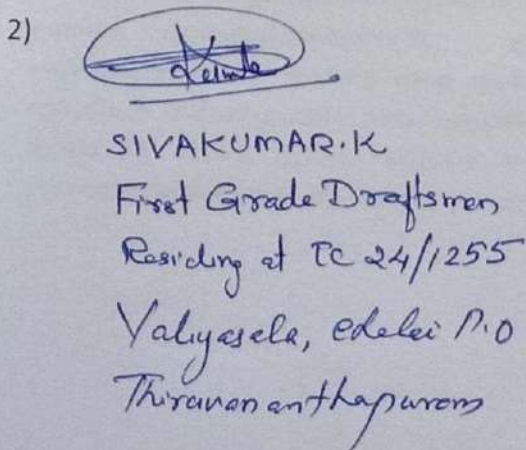 2)
SIVAKUMAR.K
First Grade Draftsmen
Residing at TC 24/1255
Valiyasala, Chalai P.O
Thiruvananthapuram